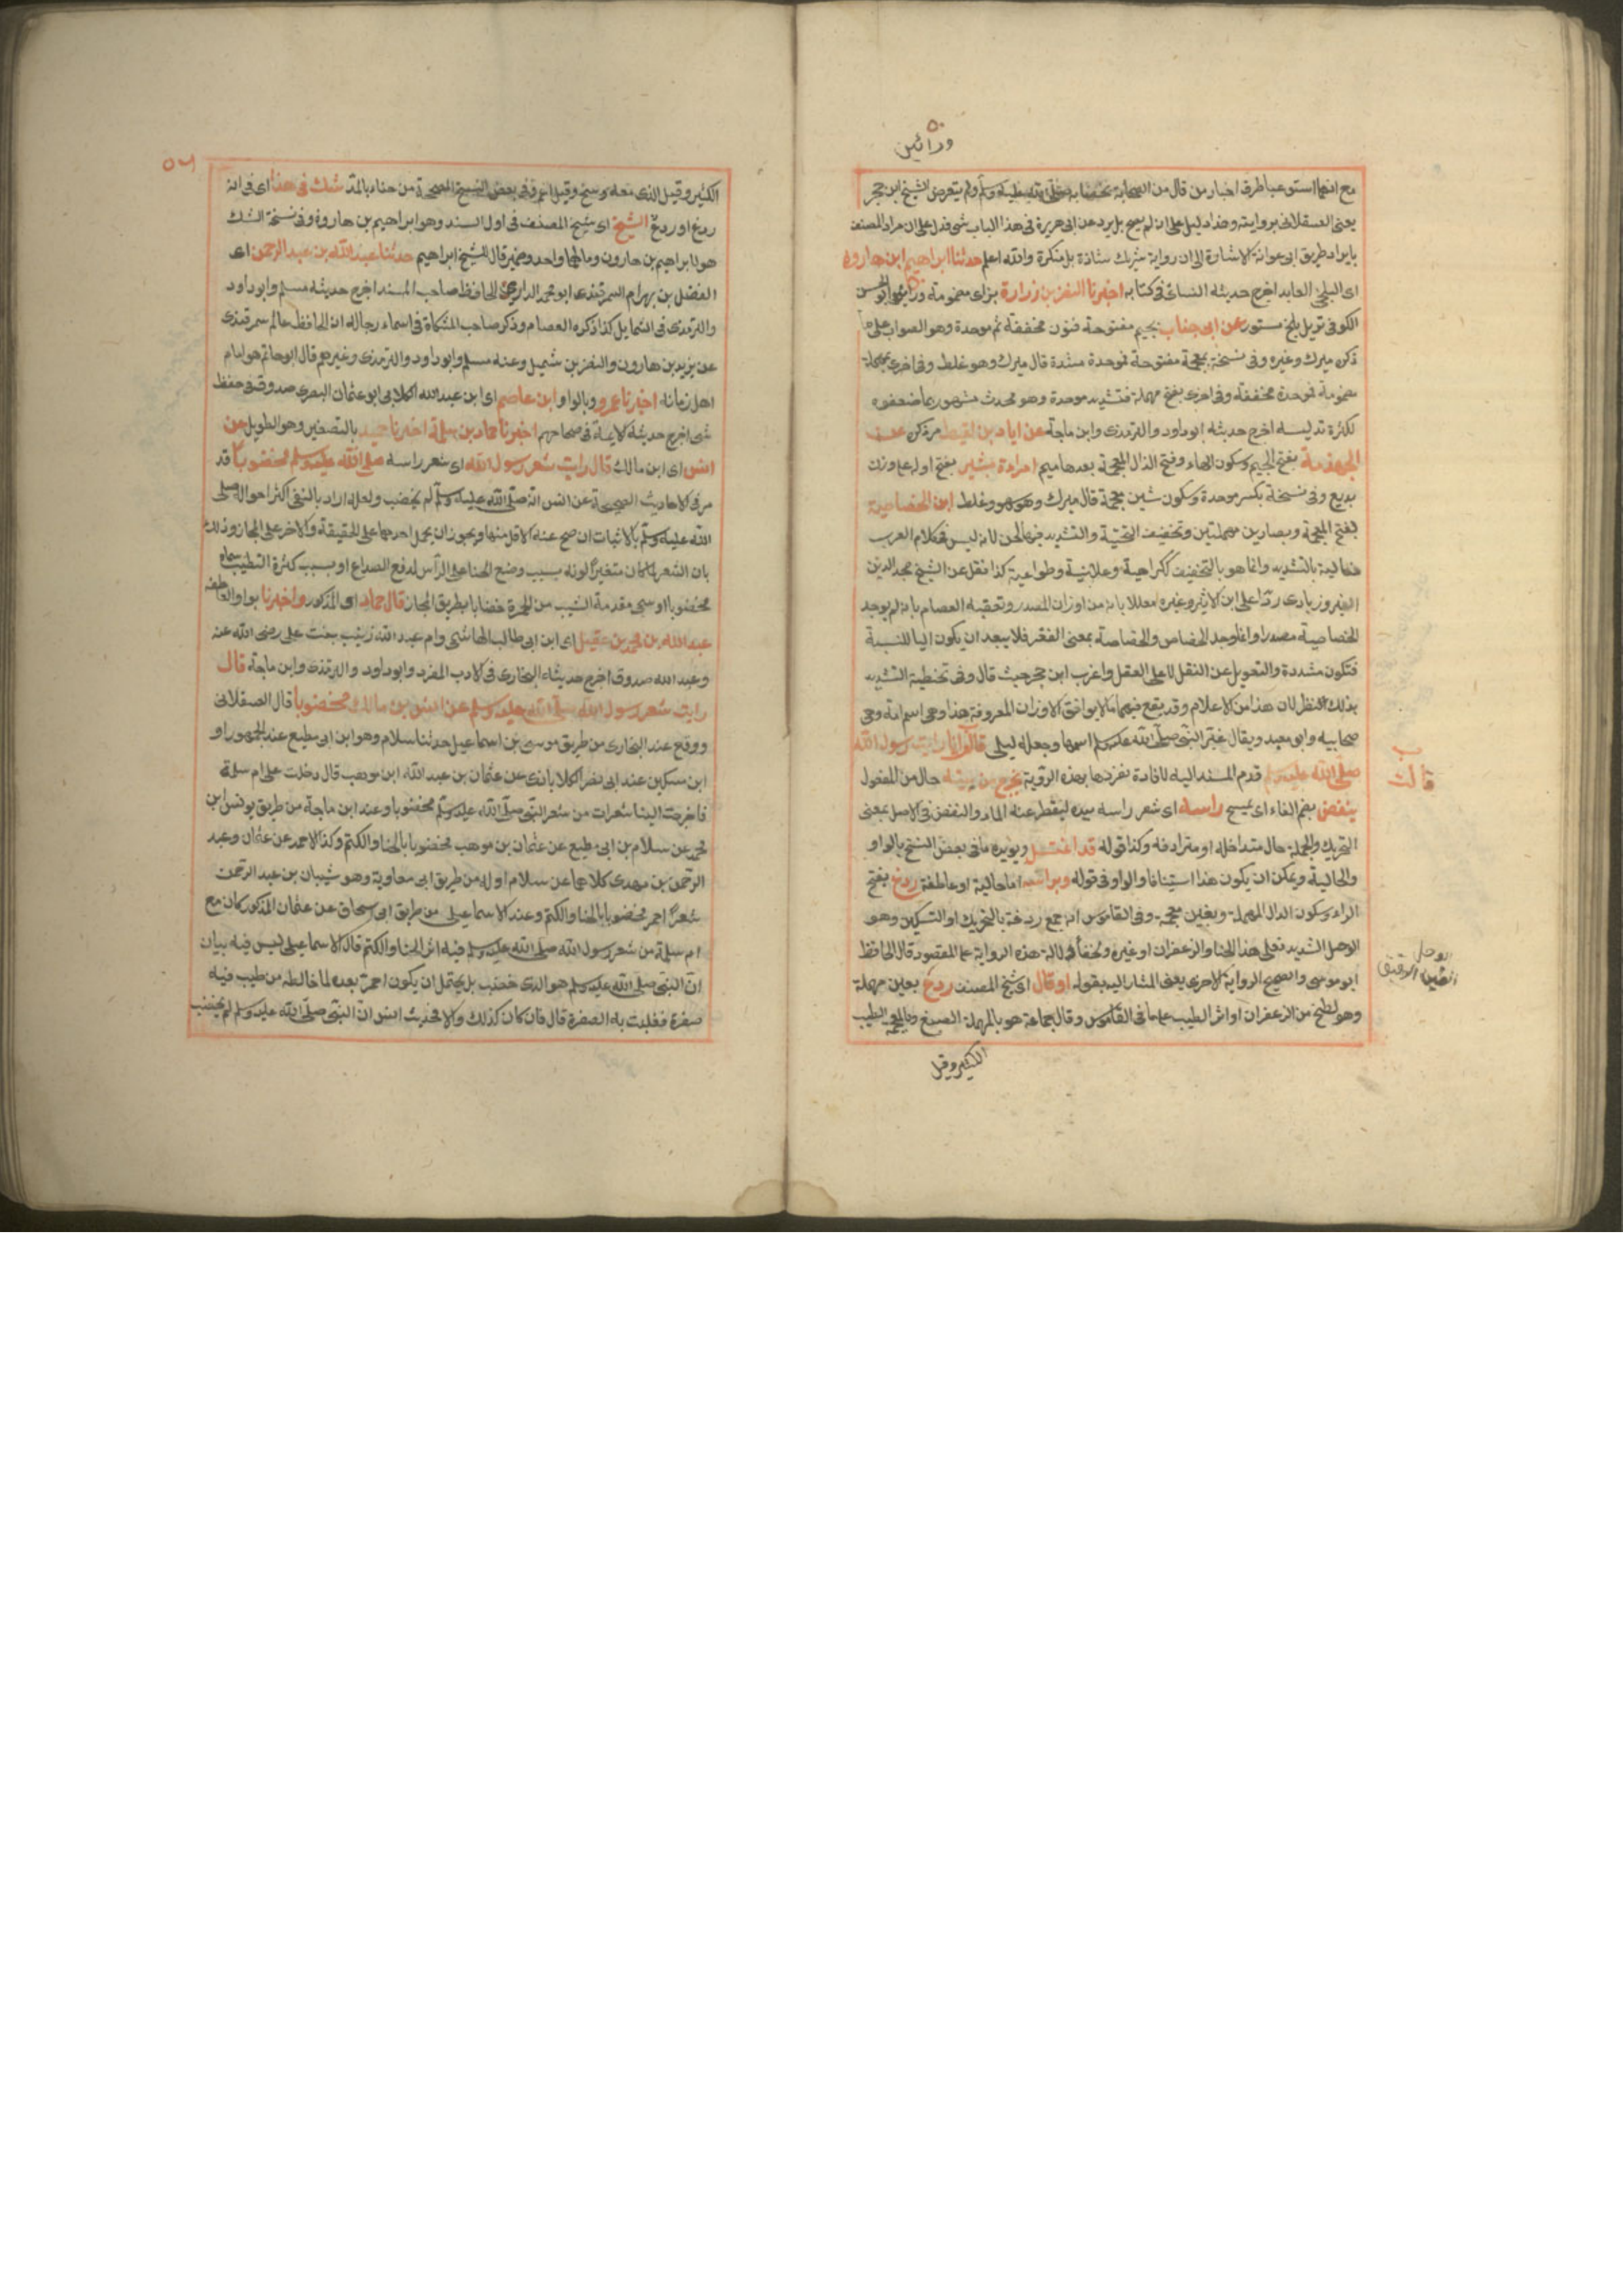 ورائين
مع انهما استوعبا طرق اخبار من قال من الصحابة بخضابه صلى الله عليه وسلم ولم يتعرض الشيخ ابن حجر
يعنى العسقلانى بروايته وهذا دليل على انه لم يصح بل يرد عن ابى هريرة فى هذا الباب شئ فدل على ان مراد المصنف
بايراد طريق ابى عوانة الاشارة الى ان رواية شريك شاذة بل منكرة والله اعلم حدثنا ابراهيم ابن هارون
اى البلخى العابد اخرج حديثه النسائى فى كتابه اخبرنا النضر بن زرارة بزاى مضمومة ورائين ابو الحسن
الكوفى نزيل بلخ مستور عن ابى جناب بجيم مفتوحة فنون مخففة ثم موحدة وهو الصواب على ما
ذكره ميرك وغيره وفى نسخة بمعجمة مفتوحة فموحدة مشددة قال ميرك وهو غلط وفى اخرى بمهملة
مضمومة فموحدة مخففة وفى اخرى بفتح مهملة فتشديد موحدة وهو محدث مشهور ربما ضعفوه
لكثرة تدليسه اخرج حديثه ابو داود والترمذى وابن ماجة عن اياد بن لقيط مر ذكره عن
الجهذمة بفتح الجيم وسكون الهاء وفتح الذال المعجمة بعدها ميم امرأة بشير بفتح اوله على وزن
بديع وفى نسخة بكسر موحدة وسكون شين معجمة قال ميرك وهو سهو وغلط ابن الخصاصية
بفتح المعجمة وبصادين مهملتين وتخفيف التحتية والتشديد فيها لحن لانه ليس فى كلام العرب
فعالية بالتشديد وانما هو بالتخفيف ككراهية وعلانية وطواعية كذا نقل عن الشيخ مجد الدين
الفيروزبادى ردا على ابن الاثير وغيره معللا بانه من اوزان المصدر وتعقبه العصام بانه لم يوجد
الخصاصية مصدرا وانما وجد الخصاص والخصاصة بمعنى الفقر فلا يبعد ان يكون اليا للنسبة
فتكون مشددة والتعويل عن النقل لا على العقل واغرب ابن حجر حيث قال وفى تخطية التشديد
بذلك النظر لان هذا من الاعلام وقد يقع فيهما ما لا يوافق الاوزان المعروفة هذا وهى اسم امه وهى
صحابيه وابى معبد ويقال غير النبى صلى الله عليه وسلم اسمها وجعله ليلى قالت انا رايت رسول الله
صلى الله عليه وسلم قدم المسند اليه لافادة تفردها بهذه الروية يخرج من بيته حال من المفعول
ينفض بضم الفاء اى يمسح راسه اى شعر راسه بيده ليقطر عنه الماء والنفض فى الاصل بمعنى
التحريك والجملة حال متداخله او مترادفه وكذا قوله قد اغتسل ويؤيده ما فى بعض النسخ بالواو
والحالية ويمكن ان يكون هذا استينافا والواو فى قوله وبراسه اما حالية او عاطفة ردغ بفتح
الراء وسكون الدال المهملة وبغين معجمة وفى القاموس انه جمع ردغة بالتحريك او التسكين وهو
الوحل الشديد فعلى هذا الحنا والزعفران او غيره ولخفاء دلالة هذه الرواية على المقصود قال الحافظ
ابو موسى والصحيح الرواية الاخرى يعنى المشار اليه بقوله او قال اى شيخ المصنف ردع بعين مهملة
وهو لطخ من الزعفران او اثر الطيب على ما فى القاموس وقال جماعة هو بالمهملة الصبغ وبالمعجمة الطيب
الكثير وقيل
قالت
الوحل
الطين الرقيق
٥٦
الكثير وقيل الذى معه وسخ وقيل اعم وفى بعض النسخ المصححة من حناء بالمد شك فى هذا اى فى انه
ردغ او ردع الشيخ اى شيخ المصنف فى اول السند وهو ابراهيم بن هارون وفى نسخة الشك
هو لابراهيم بن هارون ومالهما واحد وضمير قال للشيخ ابراهيم حدثنا عبد الله بن عبد الرحمن اى
الفضل بن بهرام السمرقندى ابو محمد الدارمى الحافظ صاحب المسند اخرج حديثه مسلم وابو داود
والترمذى فى الشمايل كذا ذكره العصام وذكر صاحب المشكاة فى اسماء رجاله انه الحافظ عالم سمرقندى
عن يزيد بن هارون والنضر بن شميل وعنه مسلم وابو داود والترمذى وغيرهم قال ابو حاتم هو امام
اهل زمانه اخبرنا عمرو وبالواو ابن عاصم اى ابن عبد الله الكلابى ابو عثمان البصرى صدوق فى حفظه
شئ اخرج حديثه الايمة فى صحاحهم اخبرنا حماد بن سلمة اخبرنا حميد بالتصغير وهو الطويل عن
انس اى ابن مالك قال رايت شعر رسول الله اى شعر راسه صلى الله عليه وسلم مخضوبا قد
مر فى الاحاديث الصحيحة عن انس انه صلى الله عليه وسلم لم يخضب ولعله اراد بالنفى اكثر احواله صلى
الله عليه وسلم بالاثبات ان صح عنه الاقل منها ويجوز ان يحمل احدهما على الحقيقة والاخر على المجاز وذلك
بان الشعر لما كان متغيرا لونه بسبب وضع الحنا على الرأس لدفع الصداع او بسبب كثرة التطيب سماه
مخضوبا او سمى مقدمة الشيب من الحمرة خضابا بطريق المجاز قال حماد اى المذكور واخبرنا بواو العاطفه
عبد الله بن محمد بن عقيل اى ابن ابى طالب الهاشمى وام عبد الله زينب بنت على رضى الله عنه
وعبد الله صدوق اخرج حديثه البخارى فى الادب المفرد وابو داود والترمذى وابن ماجة قال
رايت شعر رسول الله صلى الله عليه وسلم عن انس بن مالك مخضوبا قال العسقلانى
ووقع عند البخارى من طريق موسى بن اسماعيل حدثنا سلام وهو ابن ابى مطيع عند الجمهور او
ابن مسكين عند ابى نصر الكلاباذى عن عثمان بن عبد الله ابن موهب قال دخلت على ام سلمة
فاخرجت الينا شعرات من شعر النبى صلى الله عليه وسلم مخضوبا وعند ابن ماجة من طريق يونس ابن
محمد عن سلام بن ابى مطيع عن عثمان بن موهب مخضوبا بالحنا والكتم وكذا لاحمد عن عفان وعبد
الرحمن بن مهدى كلاهما عن سلام اوله من طريق ابى معاوية وهو شيبان بن عبد الرحمن
شعرا احمر مخضوبا بالحنا والكتم وعند الاسماعيلى من طريق ابى اسحاق عن عثمان المذكور كان مع
ام سلمة من شعر رسول الله صلى الله عليه وسلم فيه اثر الحنا والكتم قال الاسماعيلى ليس فيه بيان
ان النبى صلى الله عليه وسلم هو الذى خضب بل يحتمل ان يكون احمر بعده لما خالطه من طيب فيه
صفرة فغلبت به الصفرة قال فان كان كذلك والا فحديث انس ان النبى صلى الله عليه وسلم لم يخضب